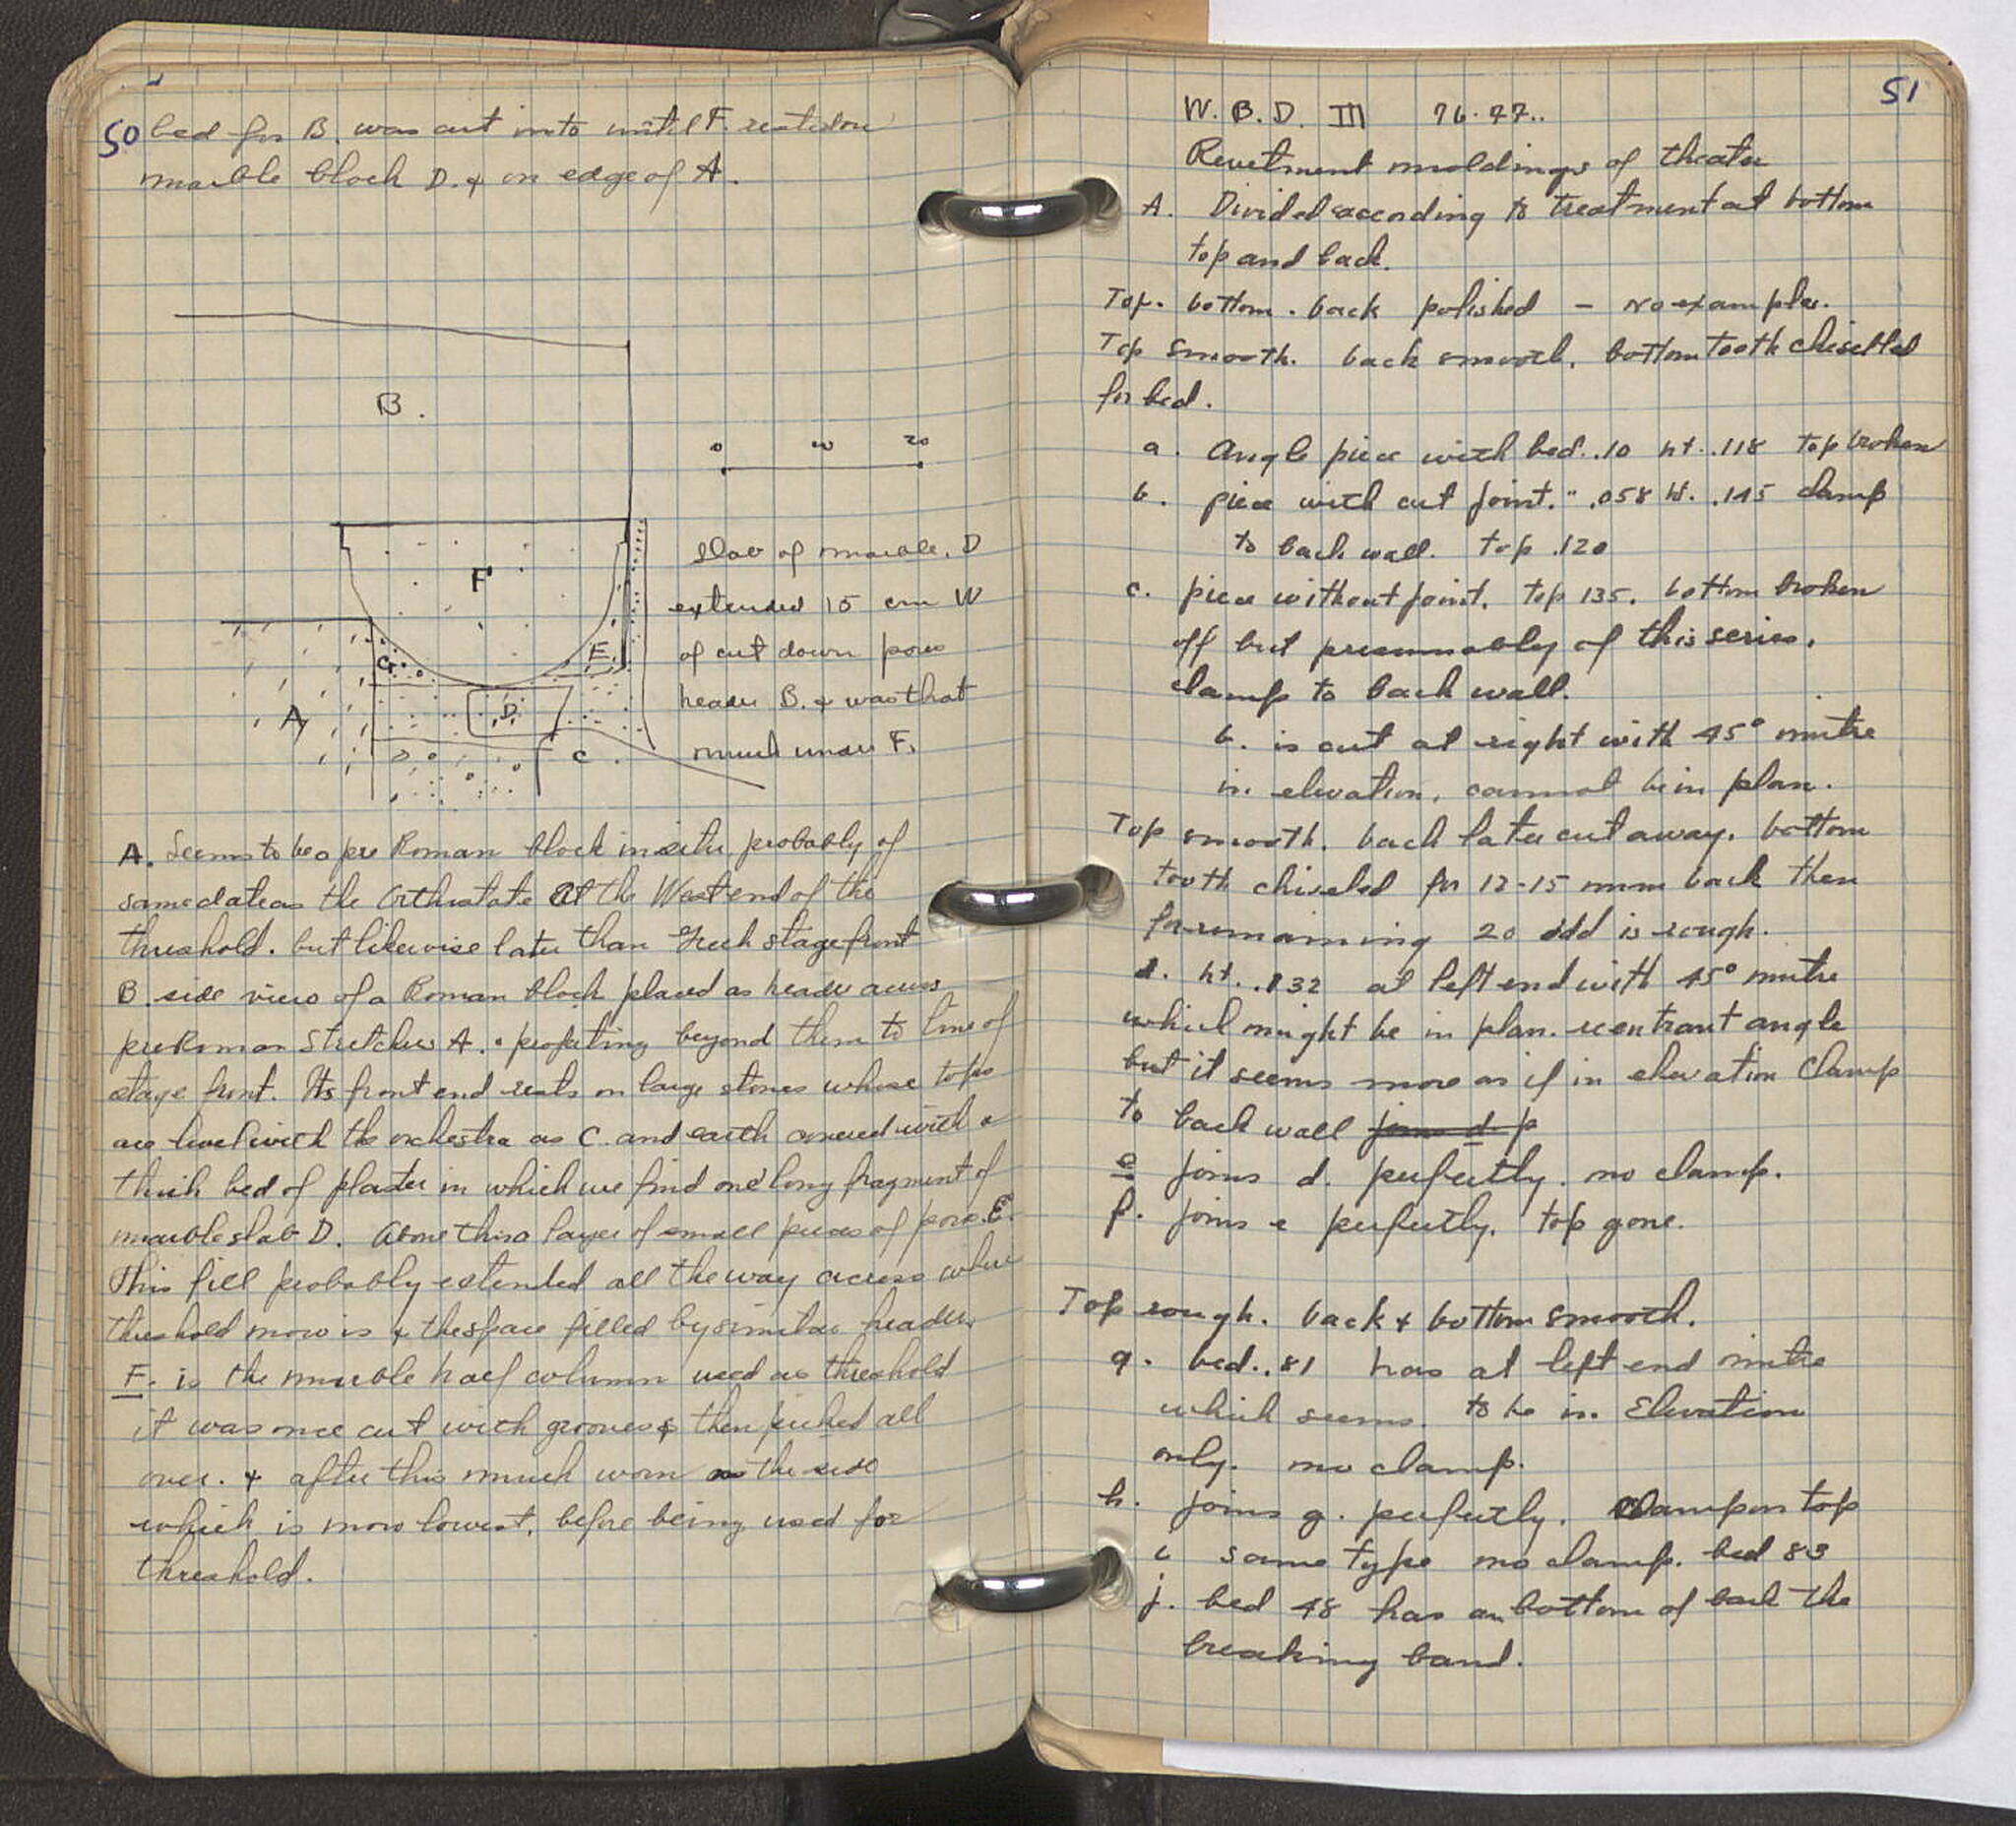 50
bed for B. was cut into until F. rested on
marble block D. & on edge of A.
B.
0 10 20
F
slab of marble, D
extended 15 cm W
of cut down poros
header B. & was that
much under F.
G
E.
A
D
C.
A. Seems to be a pre Roman block in situ, probably of
same date as the Orthostate at the West end of the
threshold. but likewise later than Greek stage front
B side view of a Roman block placed as header across
pre Roman Stretcher A. & projecting beyond them to line of
stage front. Its front end rests on large stones whose tops
are level with the orchestra as C. and earth covered with a
thick bed of plaster in which we find one long fragment of
marble slab D. Above this a layer of small pieces of poros. E.
This fill probably extended all the way across where
threshold now is & the space filled by similar headers
F. is the marble half column used as threshold
it was once cut with grooves & then picked all
over. & after this much worn on the side
which is now lowest, before being used for
threshold.
51
W. B. D. III 76.77..
Revetment moldings of theater
A. Divided according to treatment at bottom
top and back.
Top. bottom. back polished - no examples.
Top smooth. back smooth. bottom tooth chiselled
for bed.
a. Angle piece with bed. .10 ht. .118 top broken
b. piece with cut joint. " .058 ht. .145 clamp
to back wall. top .120
c. piece without joint. top 135. bottom broken
off but presumably of this series.
clamp to back wall.
b. is cut at right with 45° mitre
in elevation, cannot be in plan.
Top smooth. back later cut away. bottom
tooth chiseled for 12-15 mm back then
for remaining 20 odd is rough.
d. ht. .132 at left end with 45° mitre
which might be in plan. reentrant angle
but it seems more as if in elevation Clamp
to back wall joins d. p
e joins d. perfectly. no clamp.
f. joins e perfectly. top gone.
Top rough. back & bottom smooth.
g. bed. .81 has at left end mitre
which seems to be in Elevation
only. no clamp.
h. joins g. perfectly. Clamp on top
i same type no clamp. bed 83
j. bed 48 has on bottom of back the
breaking band.